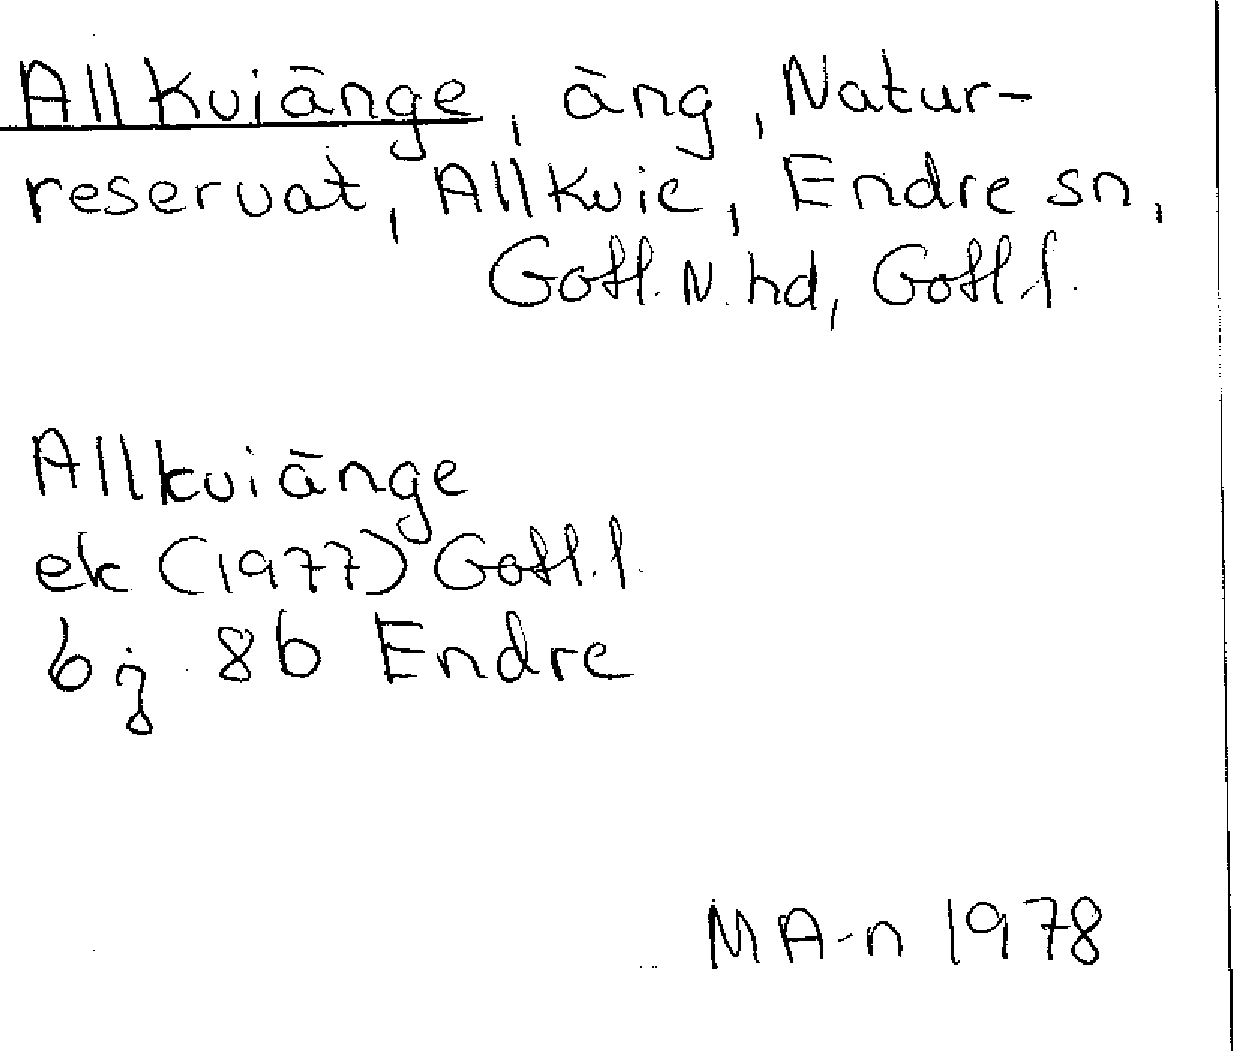 Allkviänge, äng, Natur-
reservat, Allkvie, Endre sn,
Gotl. N. hd, Gotl. l.
Allkviänge
ek (1977) Gotl. l.
bj 8b Endre
MA-n 1978